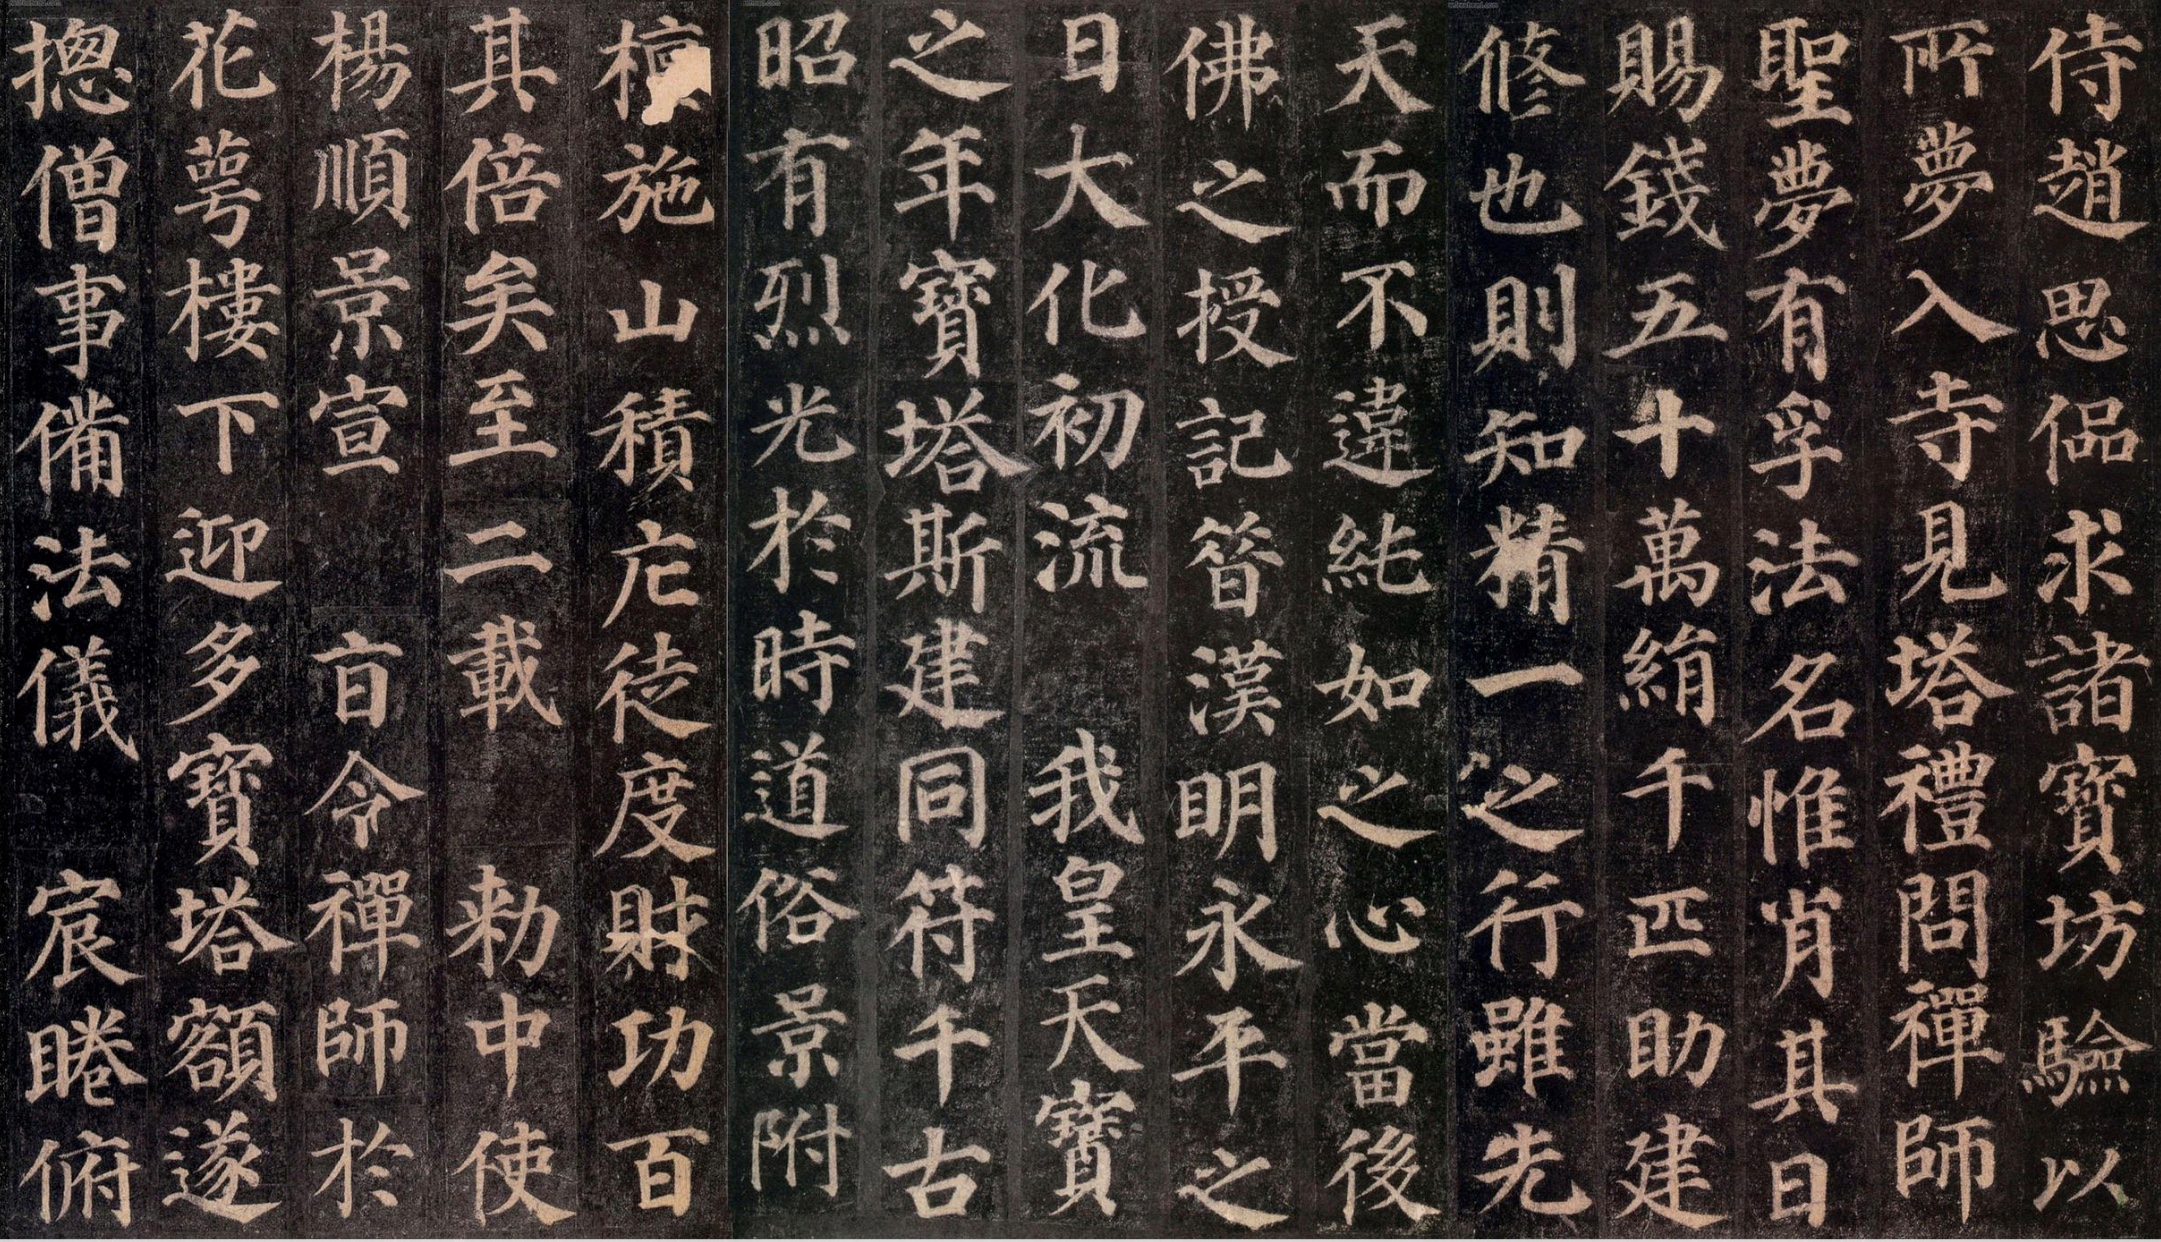 侍趙思偘求諸寶坊驗以
所夢入寺見塔禮問禪師
聖夢有孚法名惟肖其日
賜錢五十萬絹千匹助建
修也則知精一之行雖先
天而不違純如之心當後
佛之授記昔漢明永平之
日大化初流 我皇天寶
之年寶塔斯建同符千古
昭有烈光於時道俗景附
檀施山積庀徒度財功百
其倍矣至二載 敕中使
楊順景宣 旨令禪師於
花萼樓下迎多寶塔額遂
揔僧事備法儀 宸睠俯